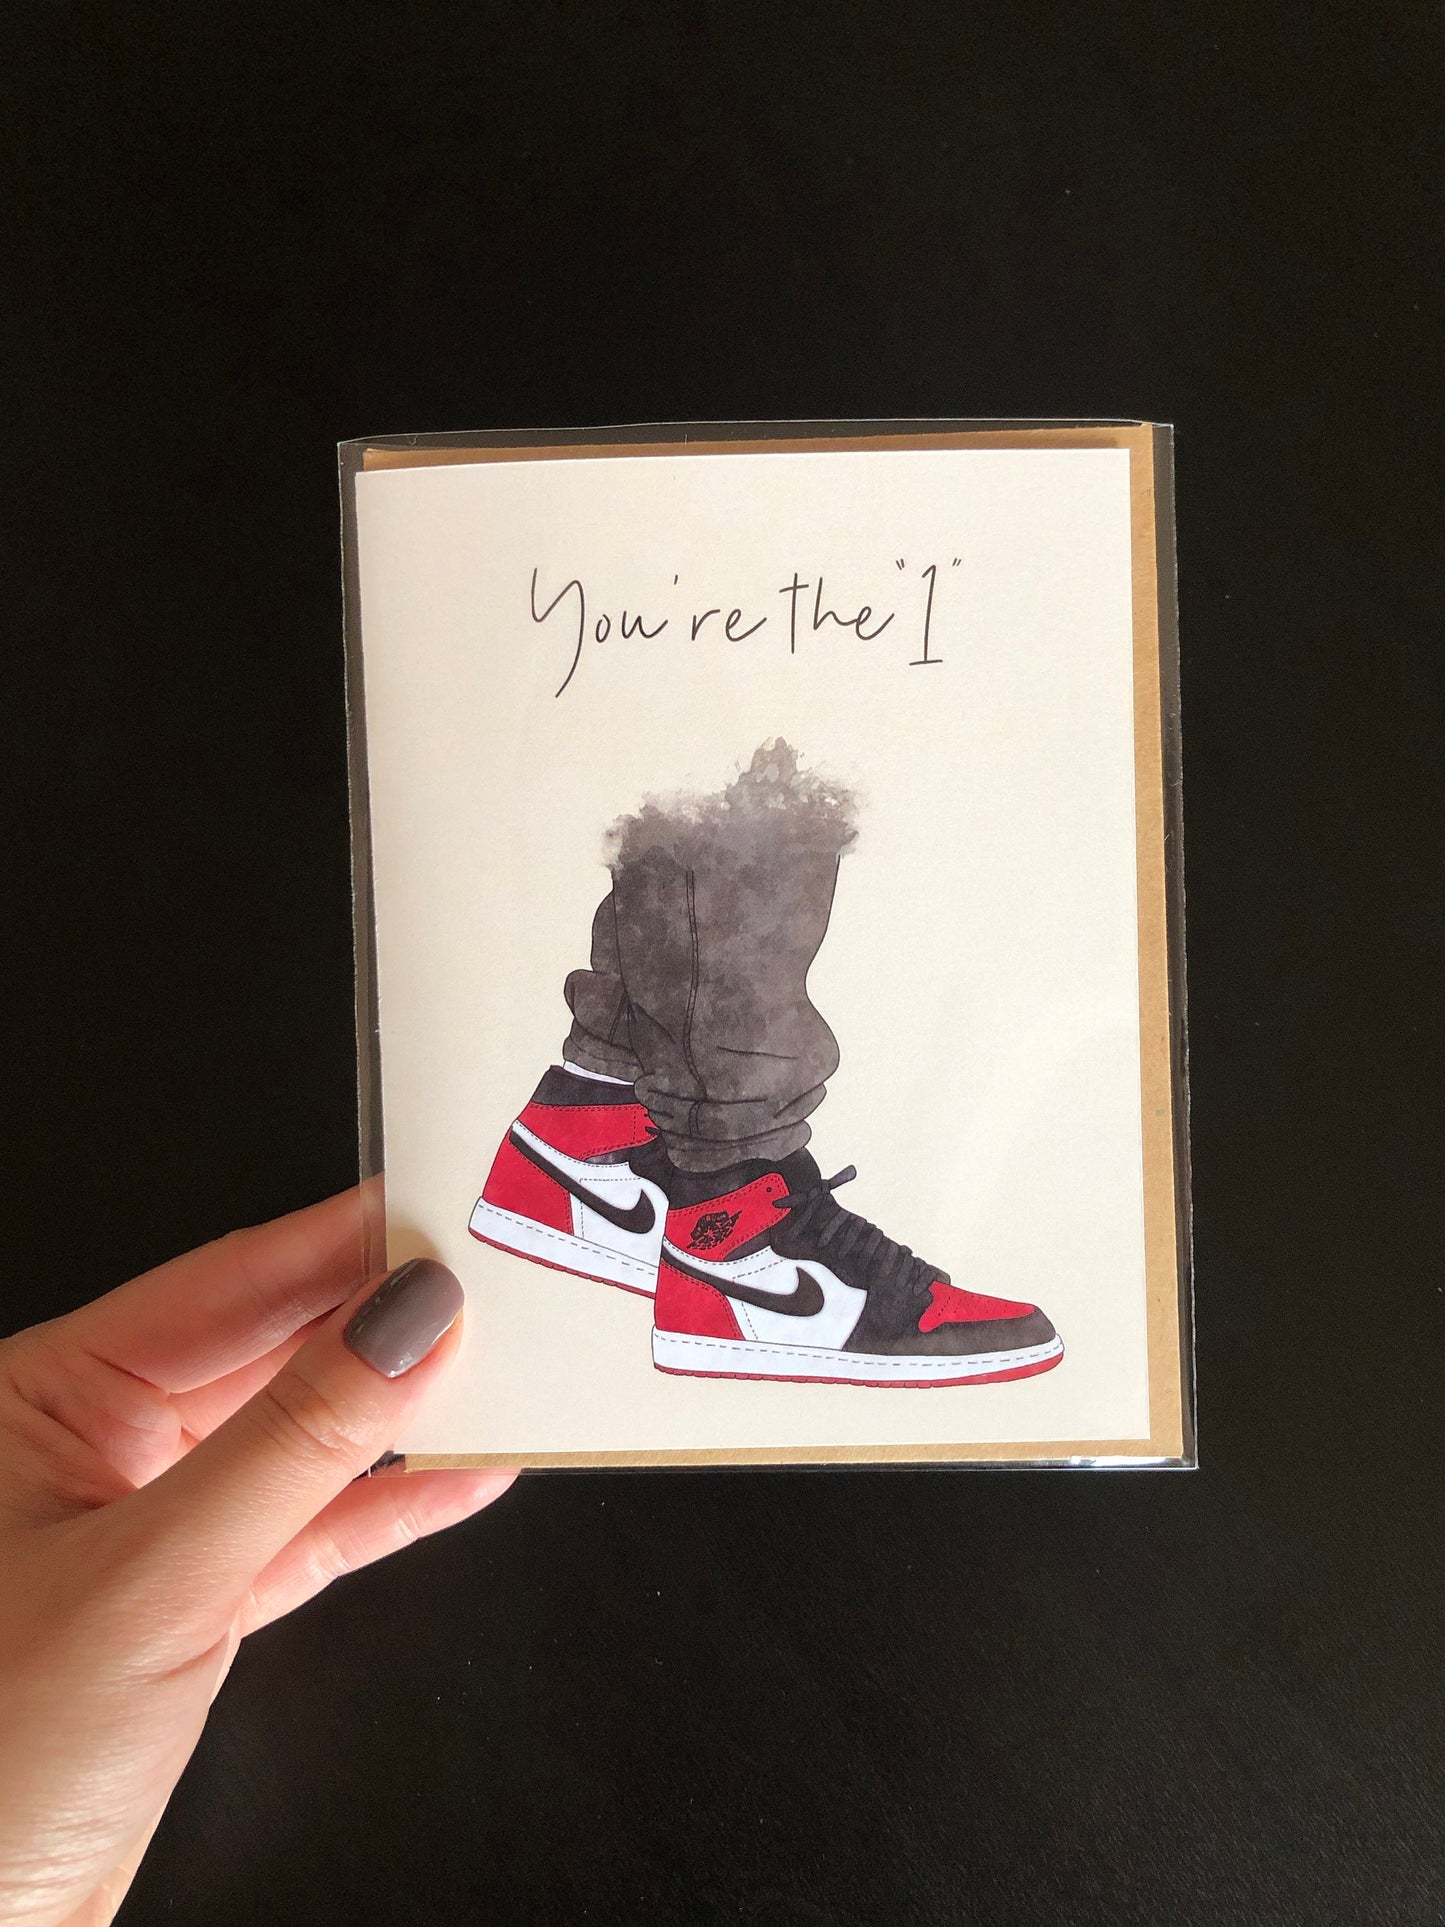 You're the "1"